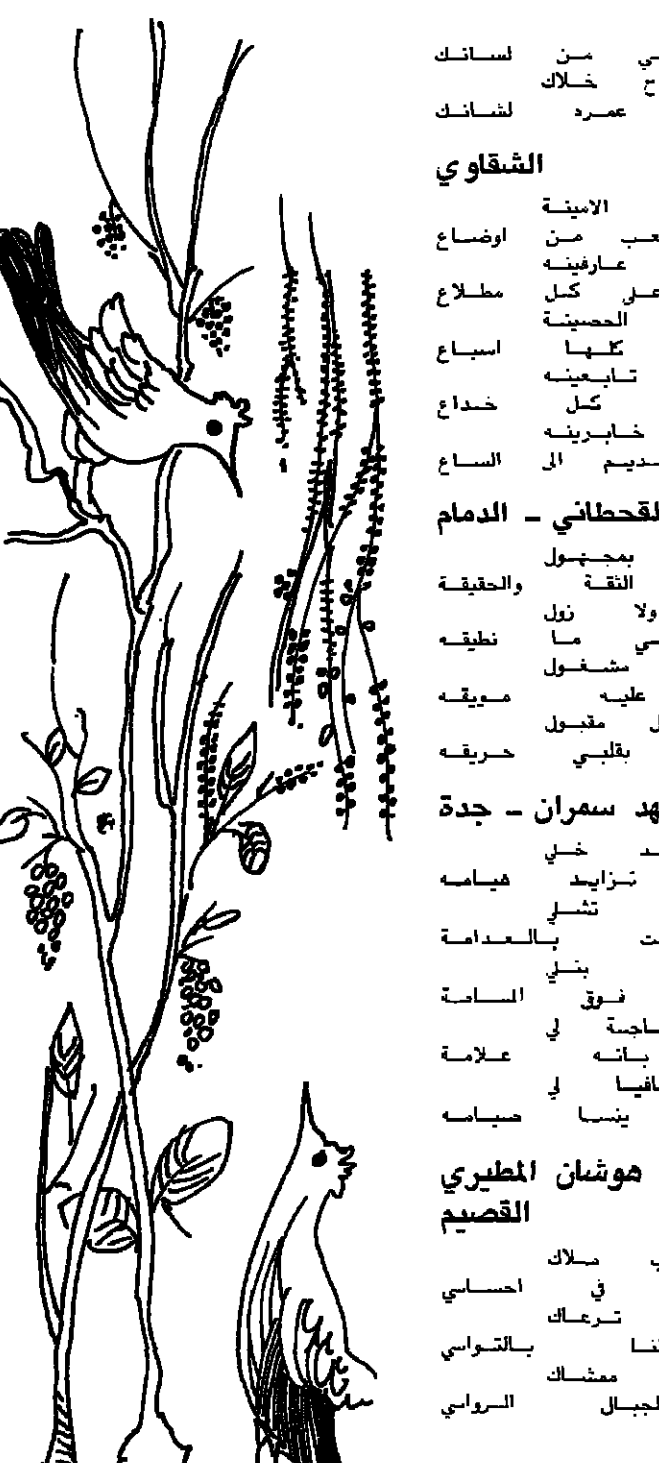 من لسانك
خلاك
عمرد لشانك
الشقاوي
الامينة
من اوضاع
عارفينه
على كل مطلاع
الحصينة
كلها اسباع
تابعينه
كل خداع
خابرينه
الى الساع
القحطاني - الدمام
بمجهول
الثقة والحقيقة
ولا نول
ما نطيقه
مشغول
عليه مويقه
مقبول
بقلبي حريقه
سمران - جدة
خلي
تزايد هيامه
تشلي
بالعدامة
بنلي
فوق المسامة
لي
بانه علامة
لي
ينسا صيامه
هوشان المطيري
القصيم
ملاك
في احساسي
ترعاك
بالتواسي
ممشاك
الجبال الرواسي